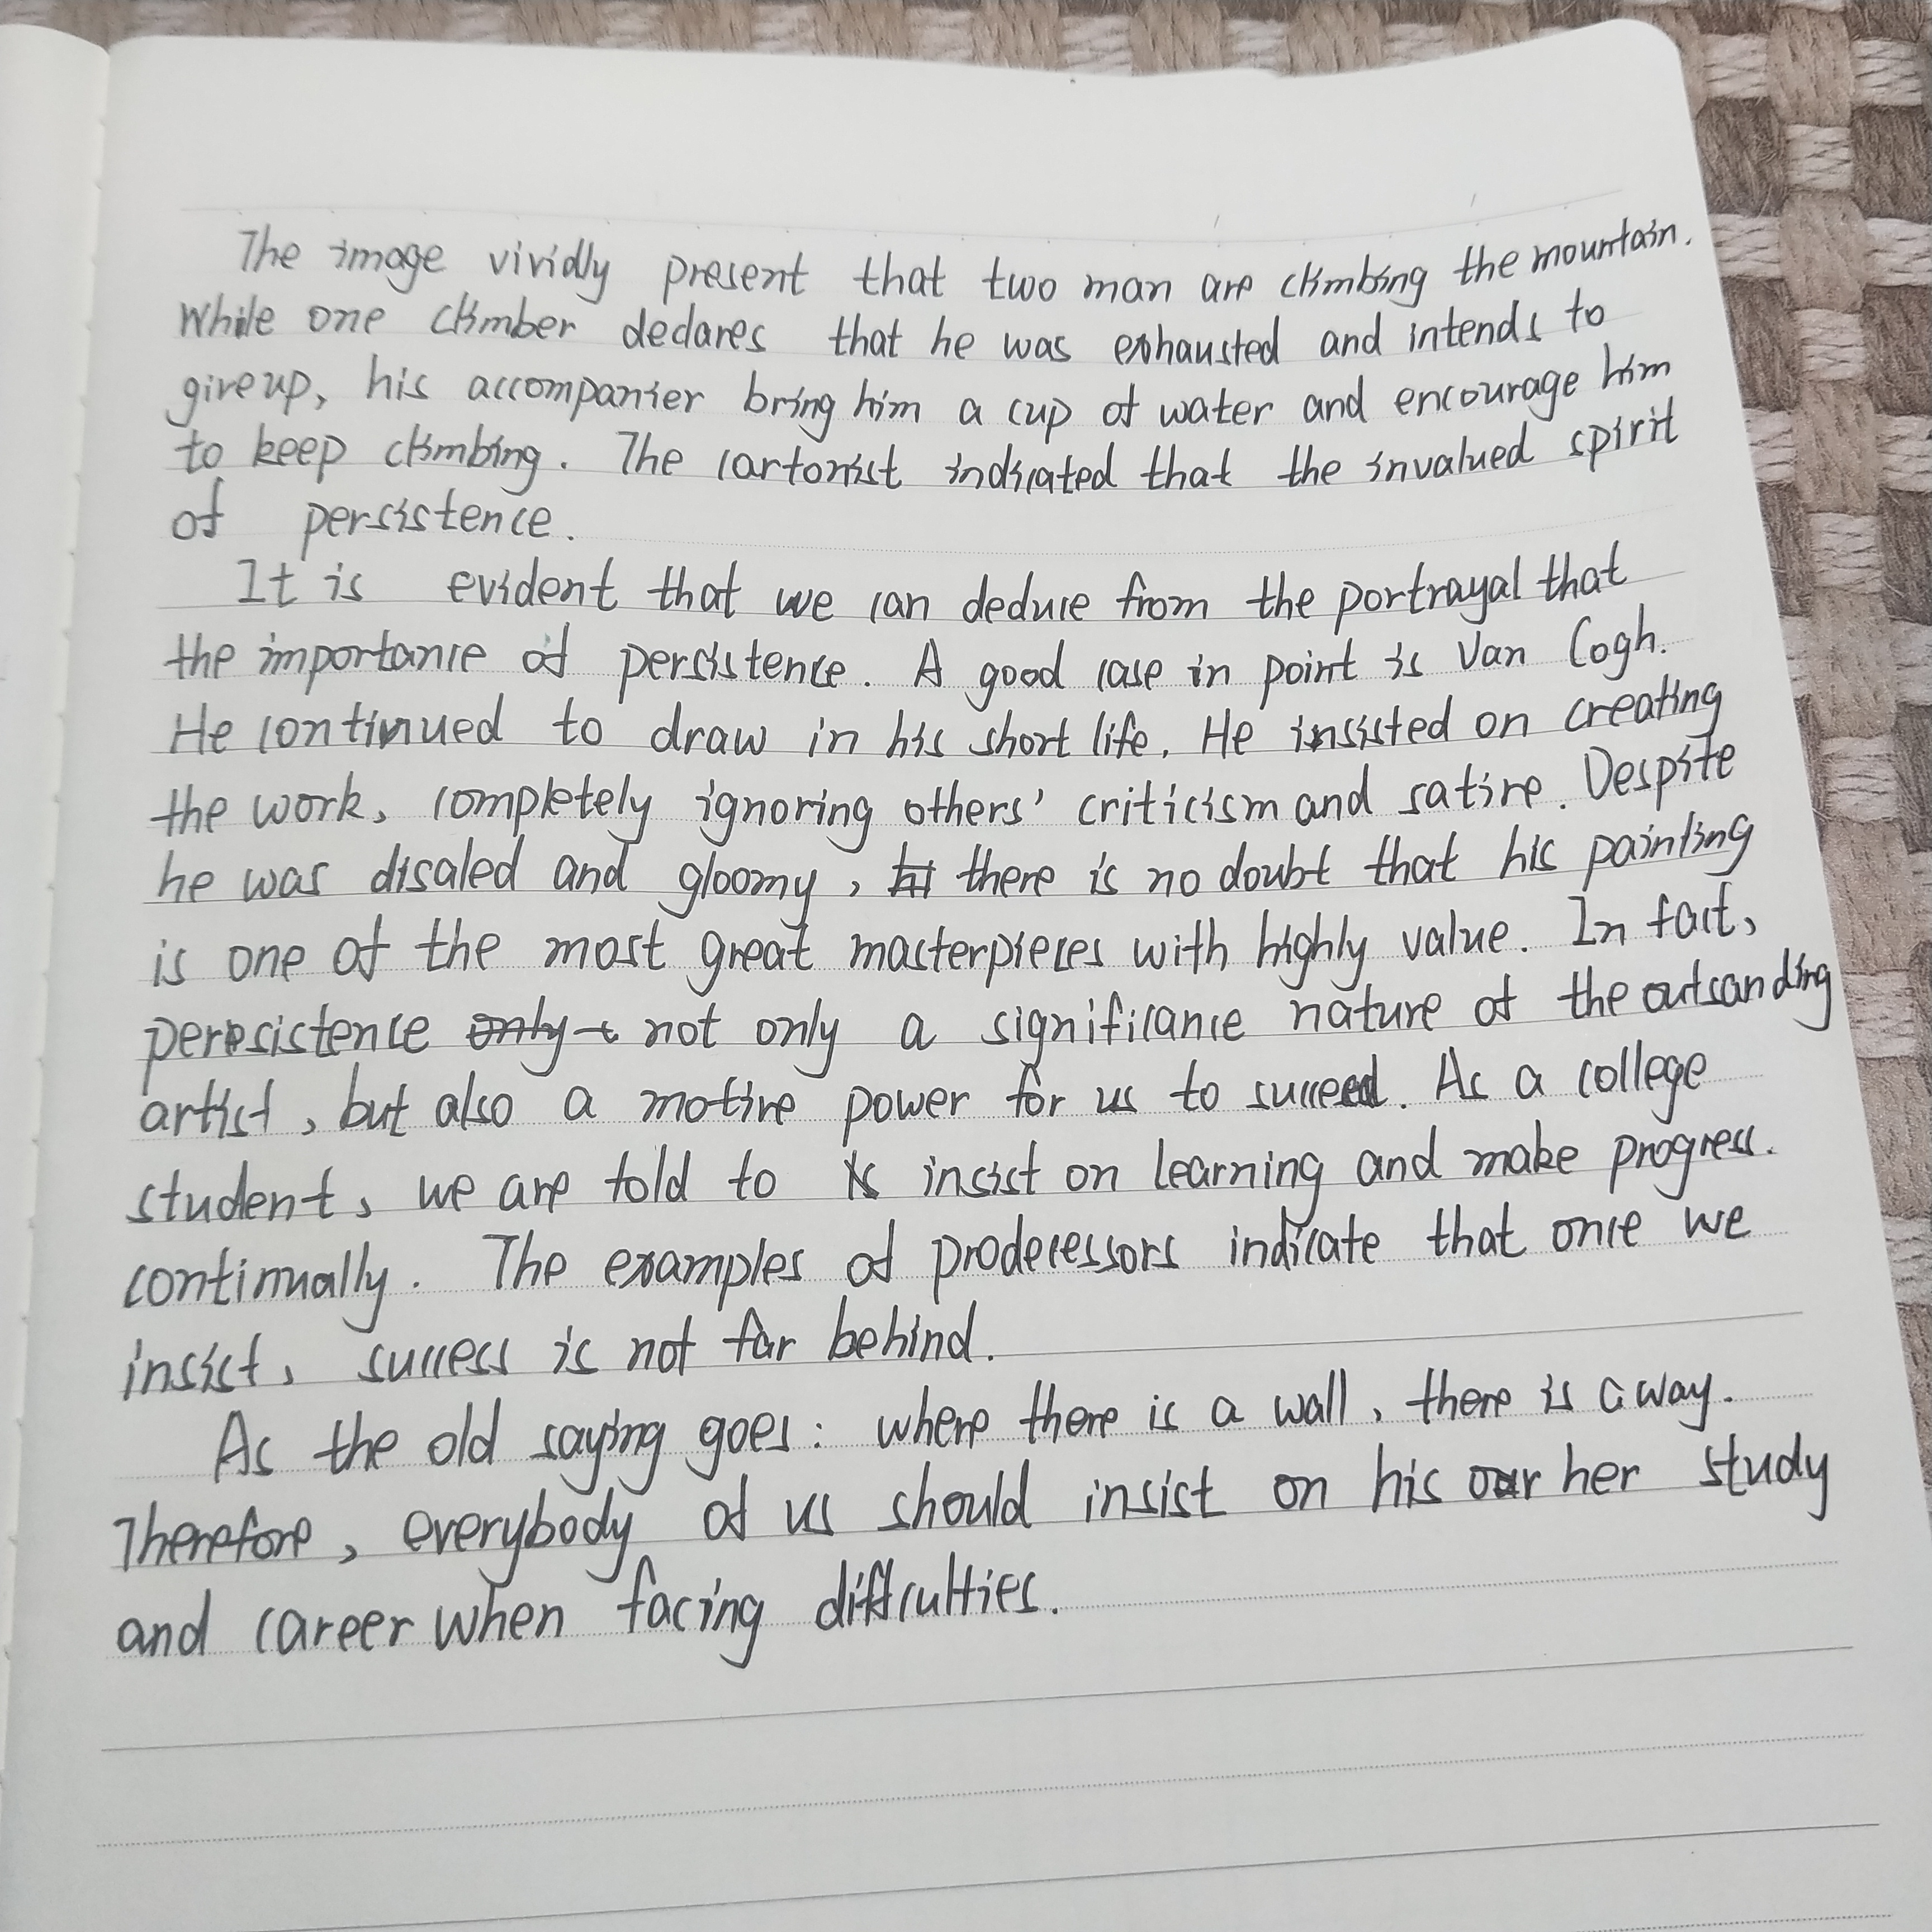 The image vividly present that two man are climbing the mountain.
While one climber declares that he was exhausted and intends to
give up, his accompanier bring him a cup of water and encourage him
to keep climbing. The cartonist indicated that the invalued spirit
of persistence.
It is evident that we can deduce from the portrayal that
the importance of persistence. A good case in point is Van Cogh.
He continued to draw in his short life. He insisted on creating
the work, completely ignoring others' criticism and satire. Despite
he was disaled and gloomy, there is no doubt that his painting
is one of the most great masterpieces with highly value. In fact,
persistence not only a significance nature of the outsanding
artist, but also a motive power for us to succeed. As a college
student, we are told to insist on learning and make progress.
continually. The examples of prodecessors indicate that once we
insist, success is not far behind.
As the old saying goes: where there is a wall, there is a way.
Therefore, everybody of us should insist on his or her study
and career when facing difficulties.